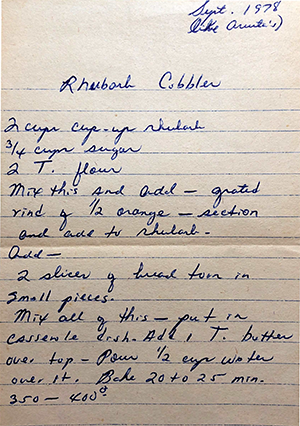 Sept. 1978
(the Arunta's)
Rhubarb Cobbler
2 cups cup-up rhubarb
3/4 cups sugar
2 T. flour
Mix this and add — grated
rind of 1/2 orange — section
and add to rhubarb -
Add —
2 slices of bread torn in
small pieces.
Mix all of this — put in
casserole dish. Add 1 T. butter
over top — Pour 1/2 cup water
over it. Bake 20 to 25 min.
350 — 400°